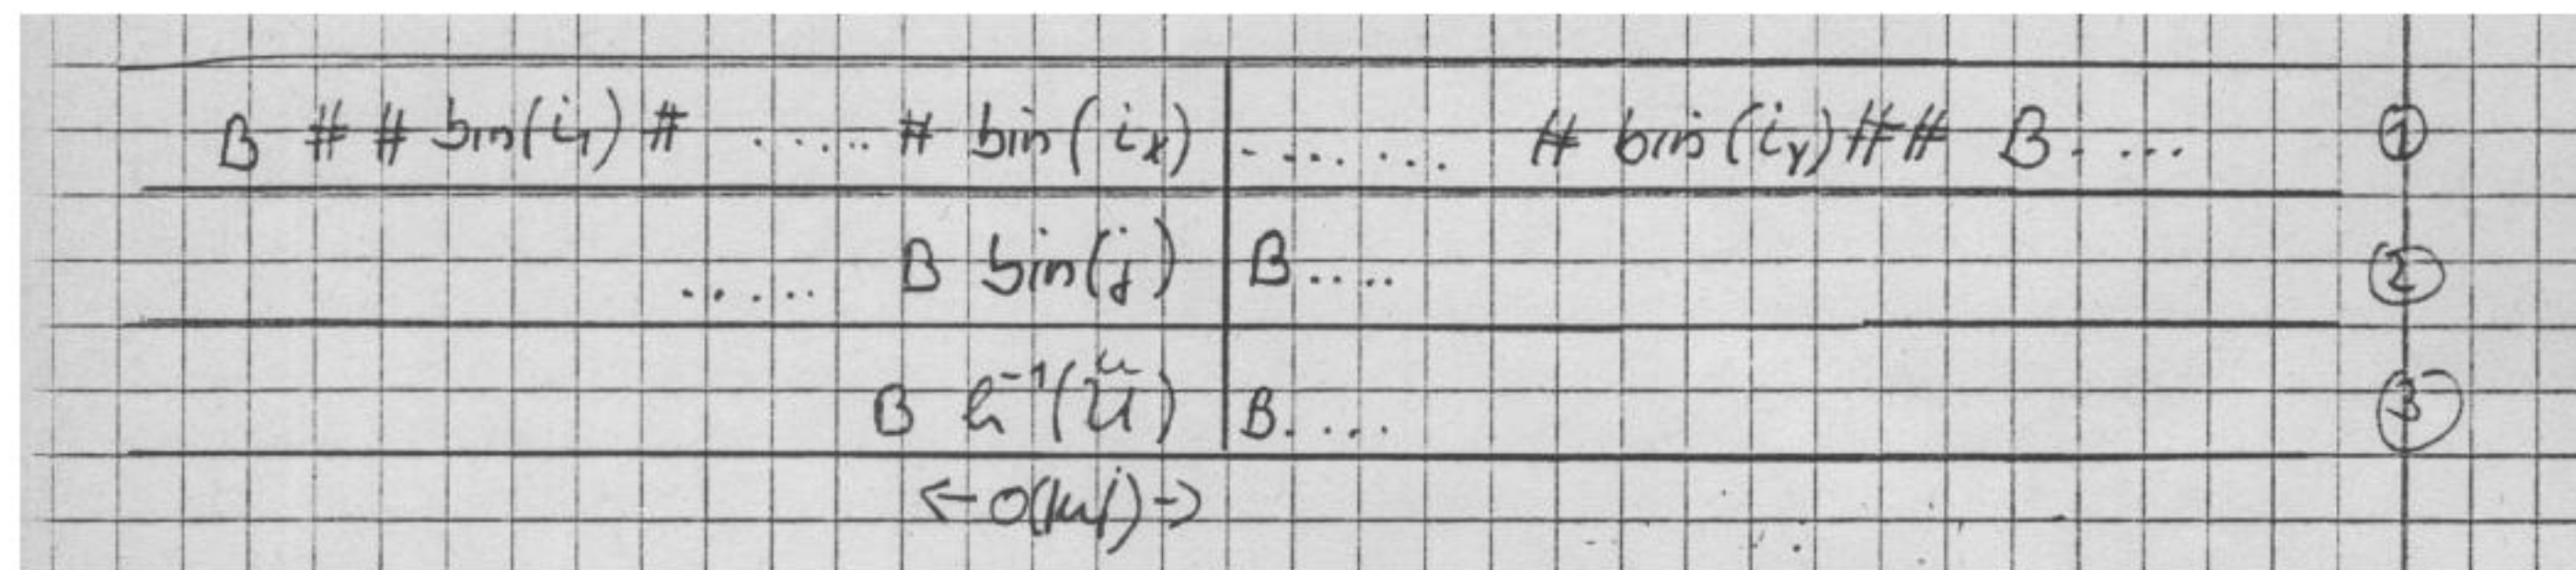 B # # bin(i₁) # ..... # bin(iₓ) | ....... # bin(iᵧ) ## B.... ①
..... B bin(j) | B.... ②
B h⁻¹( ) | B.... ③
<- O(|w|) ->